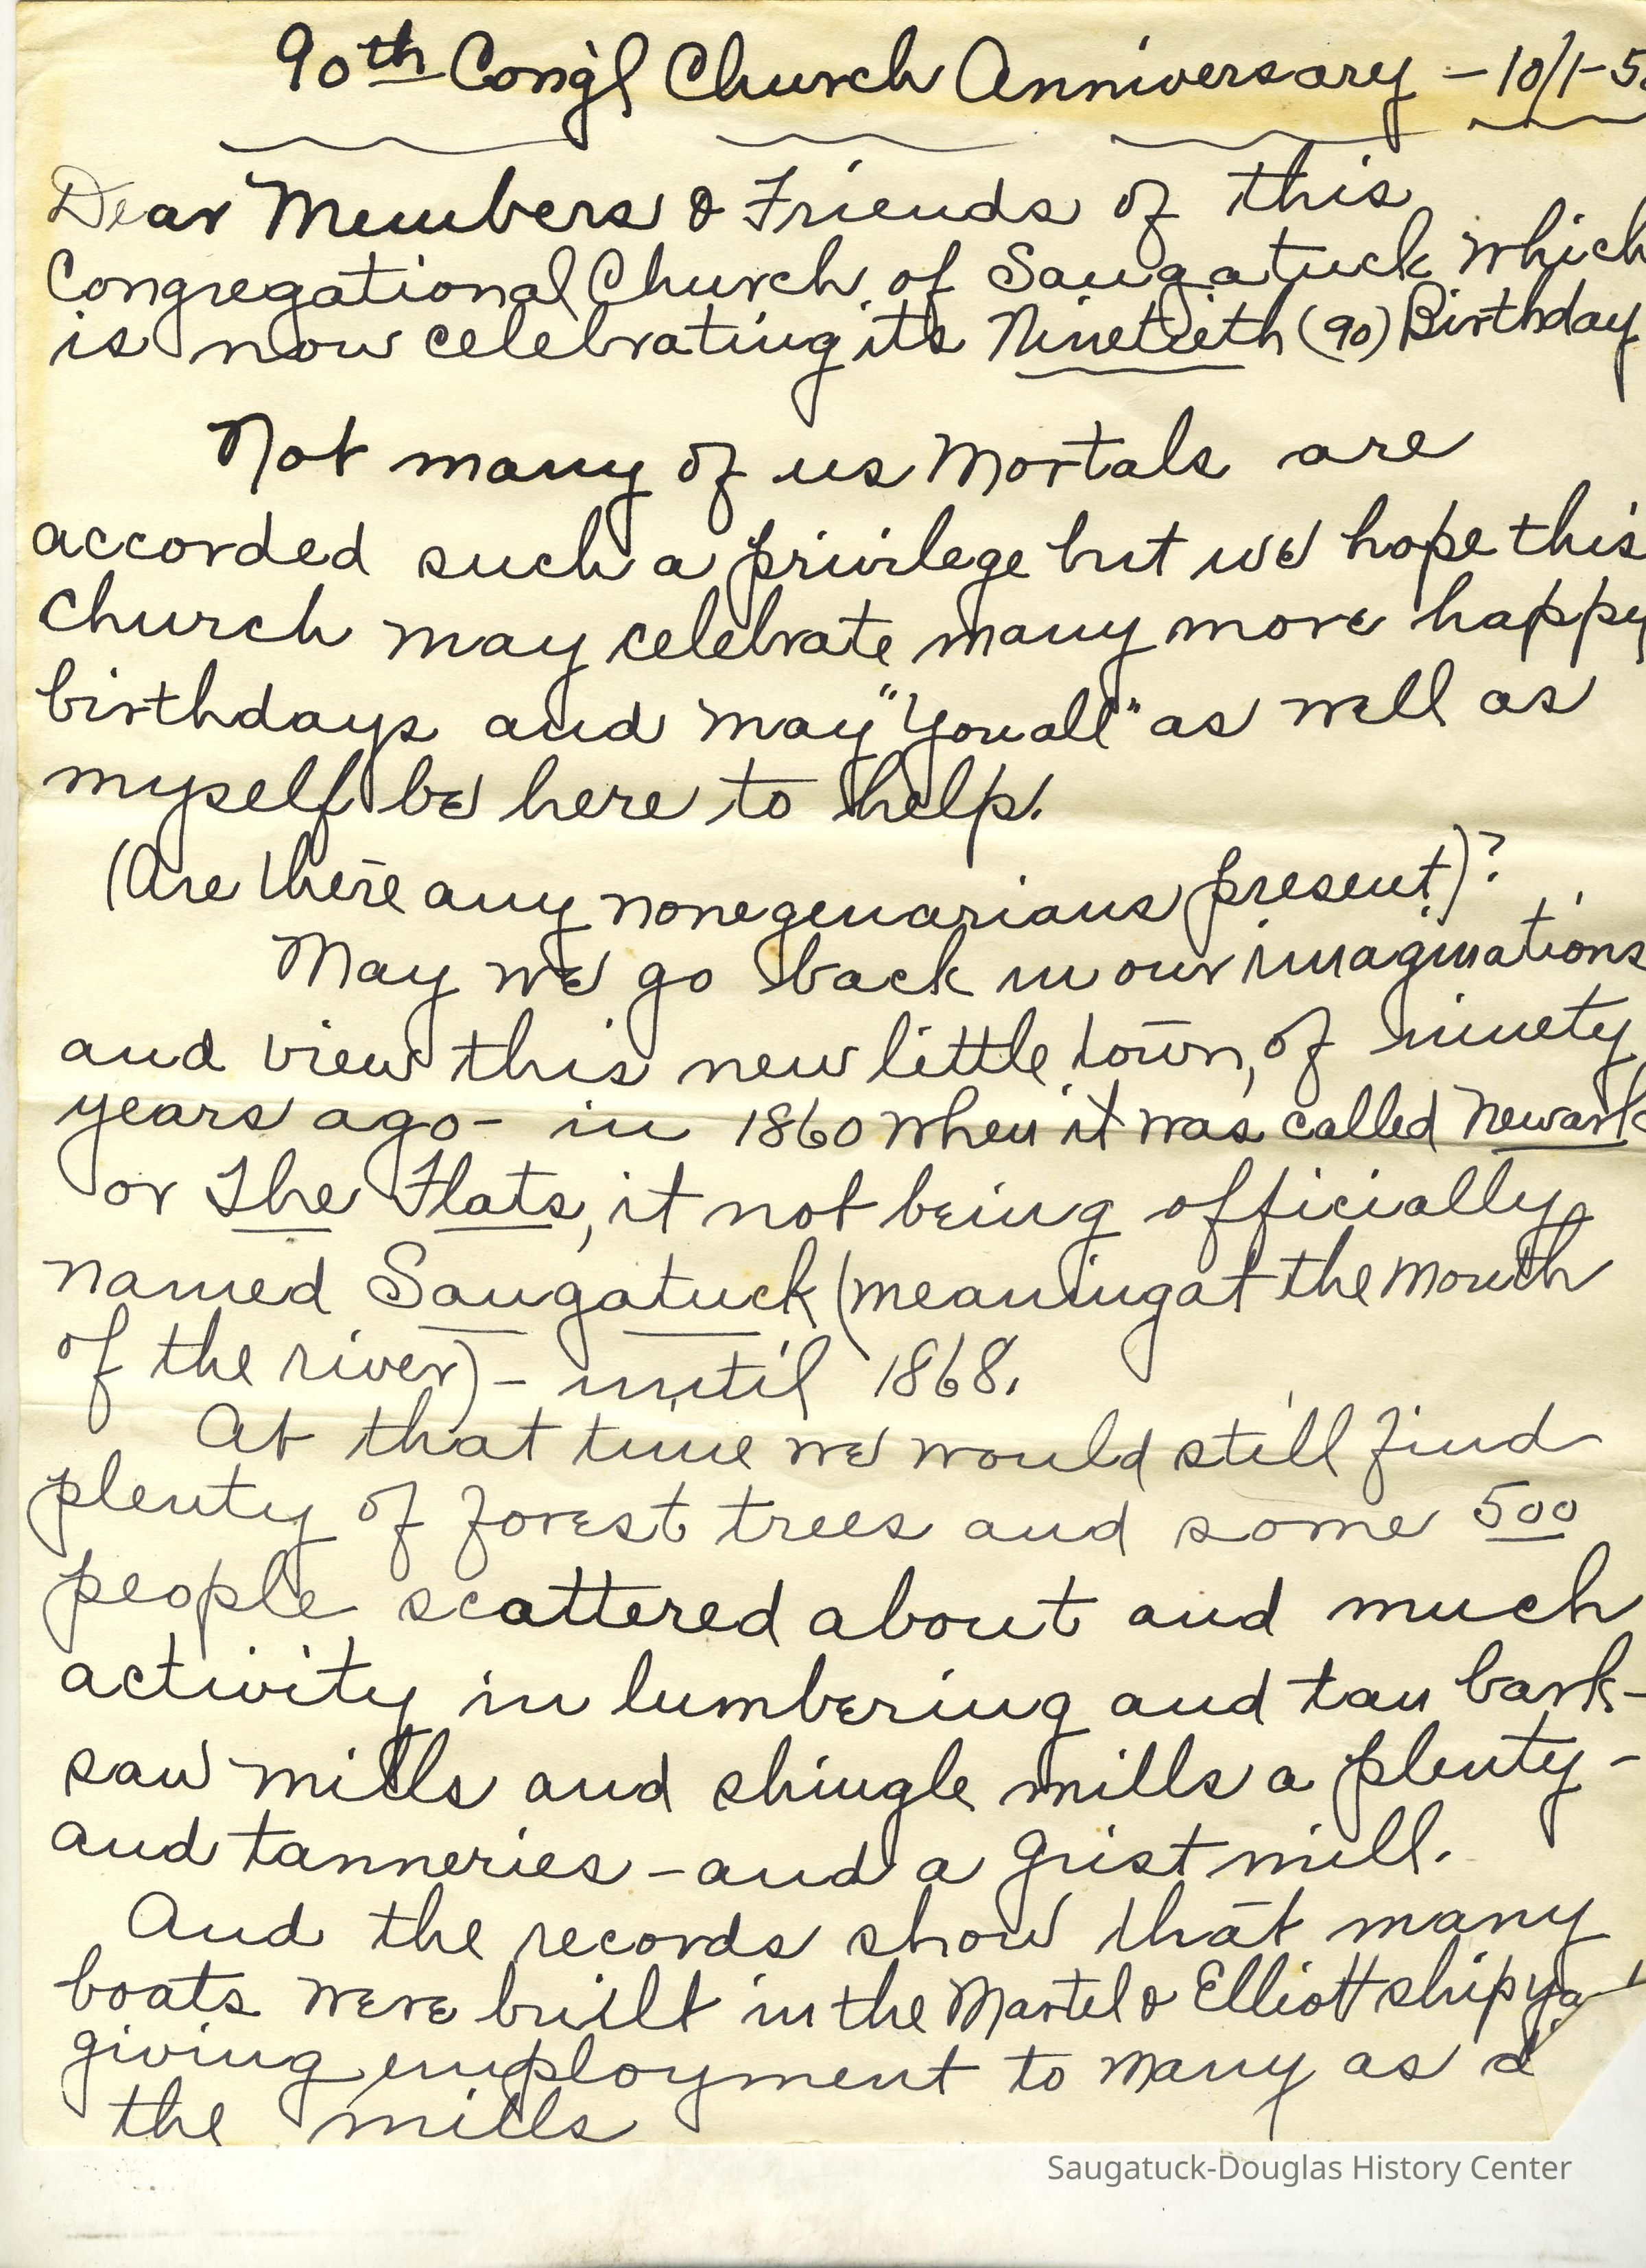 90th Cong'l Church Anniversary - 10/1-5
Dear Members & Friends of this
Congregational Church of Saugatuck which
is now celebrating its Ninetieth (90) Birthday
Not many of us Mortals are
accorded such a privilege but we hope this
Church may celebrate many more happy
birthdays and may "You all" as well as
myself be here to help.
(Are there any nonegenarians present)?
May we go back in our imaginations
and view this new little town, of ninety
years ago - in 1860 when it was called Newark
or The Flats, it not being officially
named Saugatuck (meaning at the mouth
of the river) - until 1868.
At that time we would still find
plenty of forest trees and some 500
people scattered about and much
activity in lumbering and tan bark -
saw mills and shingle mills a plenty -
and tanneries - and a grist mill.
And the records show that many
boats were built in the Martel & Elliott shipya
giving employment to many as d
the mills
Saugatuck-Douglas History Center